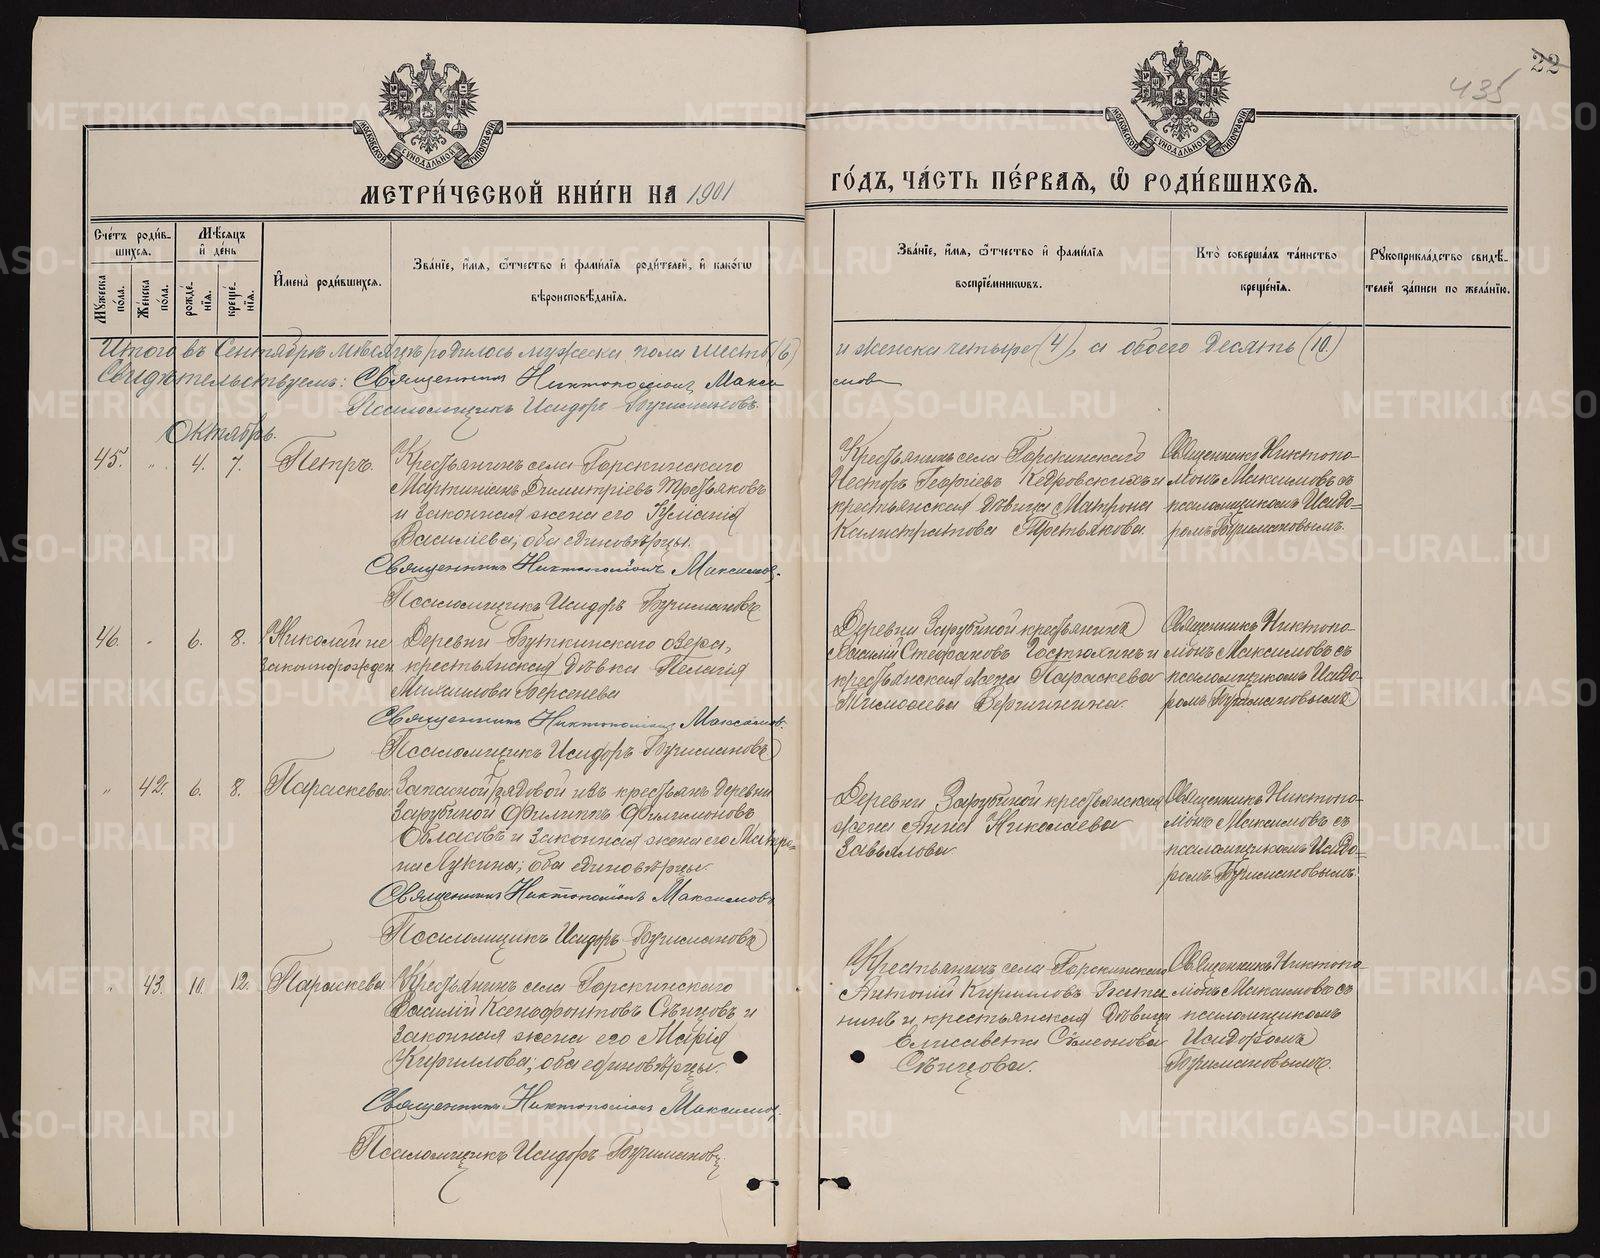 435
22
МЕТРИ́ЧЕСКОЙ КНИ́ГИ НА 1901
ГО́ДЪ, ЧА́СТЬ ПЕ́РВАЯ, Ѡ҆ РОДИ́ВШИХСЯ.
Сче́тъ роди́в-
шихся.
Мѣ́сяцъ
и҆ де́нь
Му́жеска
по́ла.
Же́нска
по́ла.
рожде́-
нїя.
креще́-
нїя.
И҆мена̀ роди́вшихся.
Зва́нїе, и҆́мя, ѻ҆́тчество и҆ фами́лїя роди́телей, и҆ како́гѡ
вѣроисповѣ́данїя.
Зва́нїе, и҆́мя, ѻ҆́тчество и҆ фами́лїя
воспрїе́мникѡвъ.
Кто̀ соверша́лъ та́инство
креще́нїя.
Рꙋкоприкла́дство свидѣ́-
телей за́писи по жела́нїю.
Итого въ Сентябрѣ мѣсяцѣ родилось мужеска пола шесть (6)
и женска четыре (4), а обоего десять (10)
Свидѣтельствуемъ: Священникъ Никтополіонъ Макси
мовъ
Псаломщикъ Исидоръ
Октябрь.
45. " 4. 7. Петръ.
Крестьянинъ села Горскинскаго
Мартиніанъ Димитріевъ Третьяковъ
и законная жена его Іуліанія
Василіева; оба единовѣрцы.
Священникъ Никтополіонъ Максимовъ.
Псаломщикъ Исидоръ
Крестьянинъ села Горскинскаго
Несторъ Георгіевъ Кедровскихъ и
крестьянская дѣвица Матрона
Калистратова Третьякова.
Священникъ Никтопо-
ліонъ Максимовъ съ
псаломщикомъ Исидо-
ромъ
46. " 6. 8. Николай не
законнорожден
Деревни Буткинскаго озера,
крестьянская дѣвка Пелагія
Михаилова Берсенева
Священникъ Никтополіонъ Максимовъ.
Псаломщикъ Исидоръ
Деревни Зарубиной крестьянинъ
Василій Стефановъ и
крестьянская жена Параскева
Тимофеева Вершинина.
Священникъ Никтопо-
ліонъ Максимовъ съ
псаломщикомъ Исидо-
ромъ
" 42. 6. 8. Параскева.
Запасной рядовой изъ крестьянъ деревни
Зарубиной Филиппъ Филимоновъ
и законная жена его Матро-
на Лукина; оба единовѣрцы.
Священникъ Никтополіонъ Максимовъ
Псаломщикъ Исидоръ
Деревни Зарубиной крестьянская
жена Анна Николаева
Завьялова.
Священникъ Никтопо-
ліонъ Максимовъ съ
псаломщикомъ Исидо-
ромъ
" 43. 10. 12. Параскева
Крестьянинъ села Горскинскаго
Василій Ксенофонтовъ Сѣнцовъ и
законная жена его Марія
Кириллова; оба единовѣрцы.
Священникъ Никтополіонъ Максимовъ.
Псаломщикъ Исидоръ
Крестьянинъ села Горскинскаго
Антоній Кирилловъ
нинъ и крестьянская дѣвица
Елисавета Симеонова
Сѣнцова.
Священникъ Никтопо-
ліонъ Максимовъ съ
псаломщикомъ
Исидоромъ
METRIKI.GASO-URAL.RU